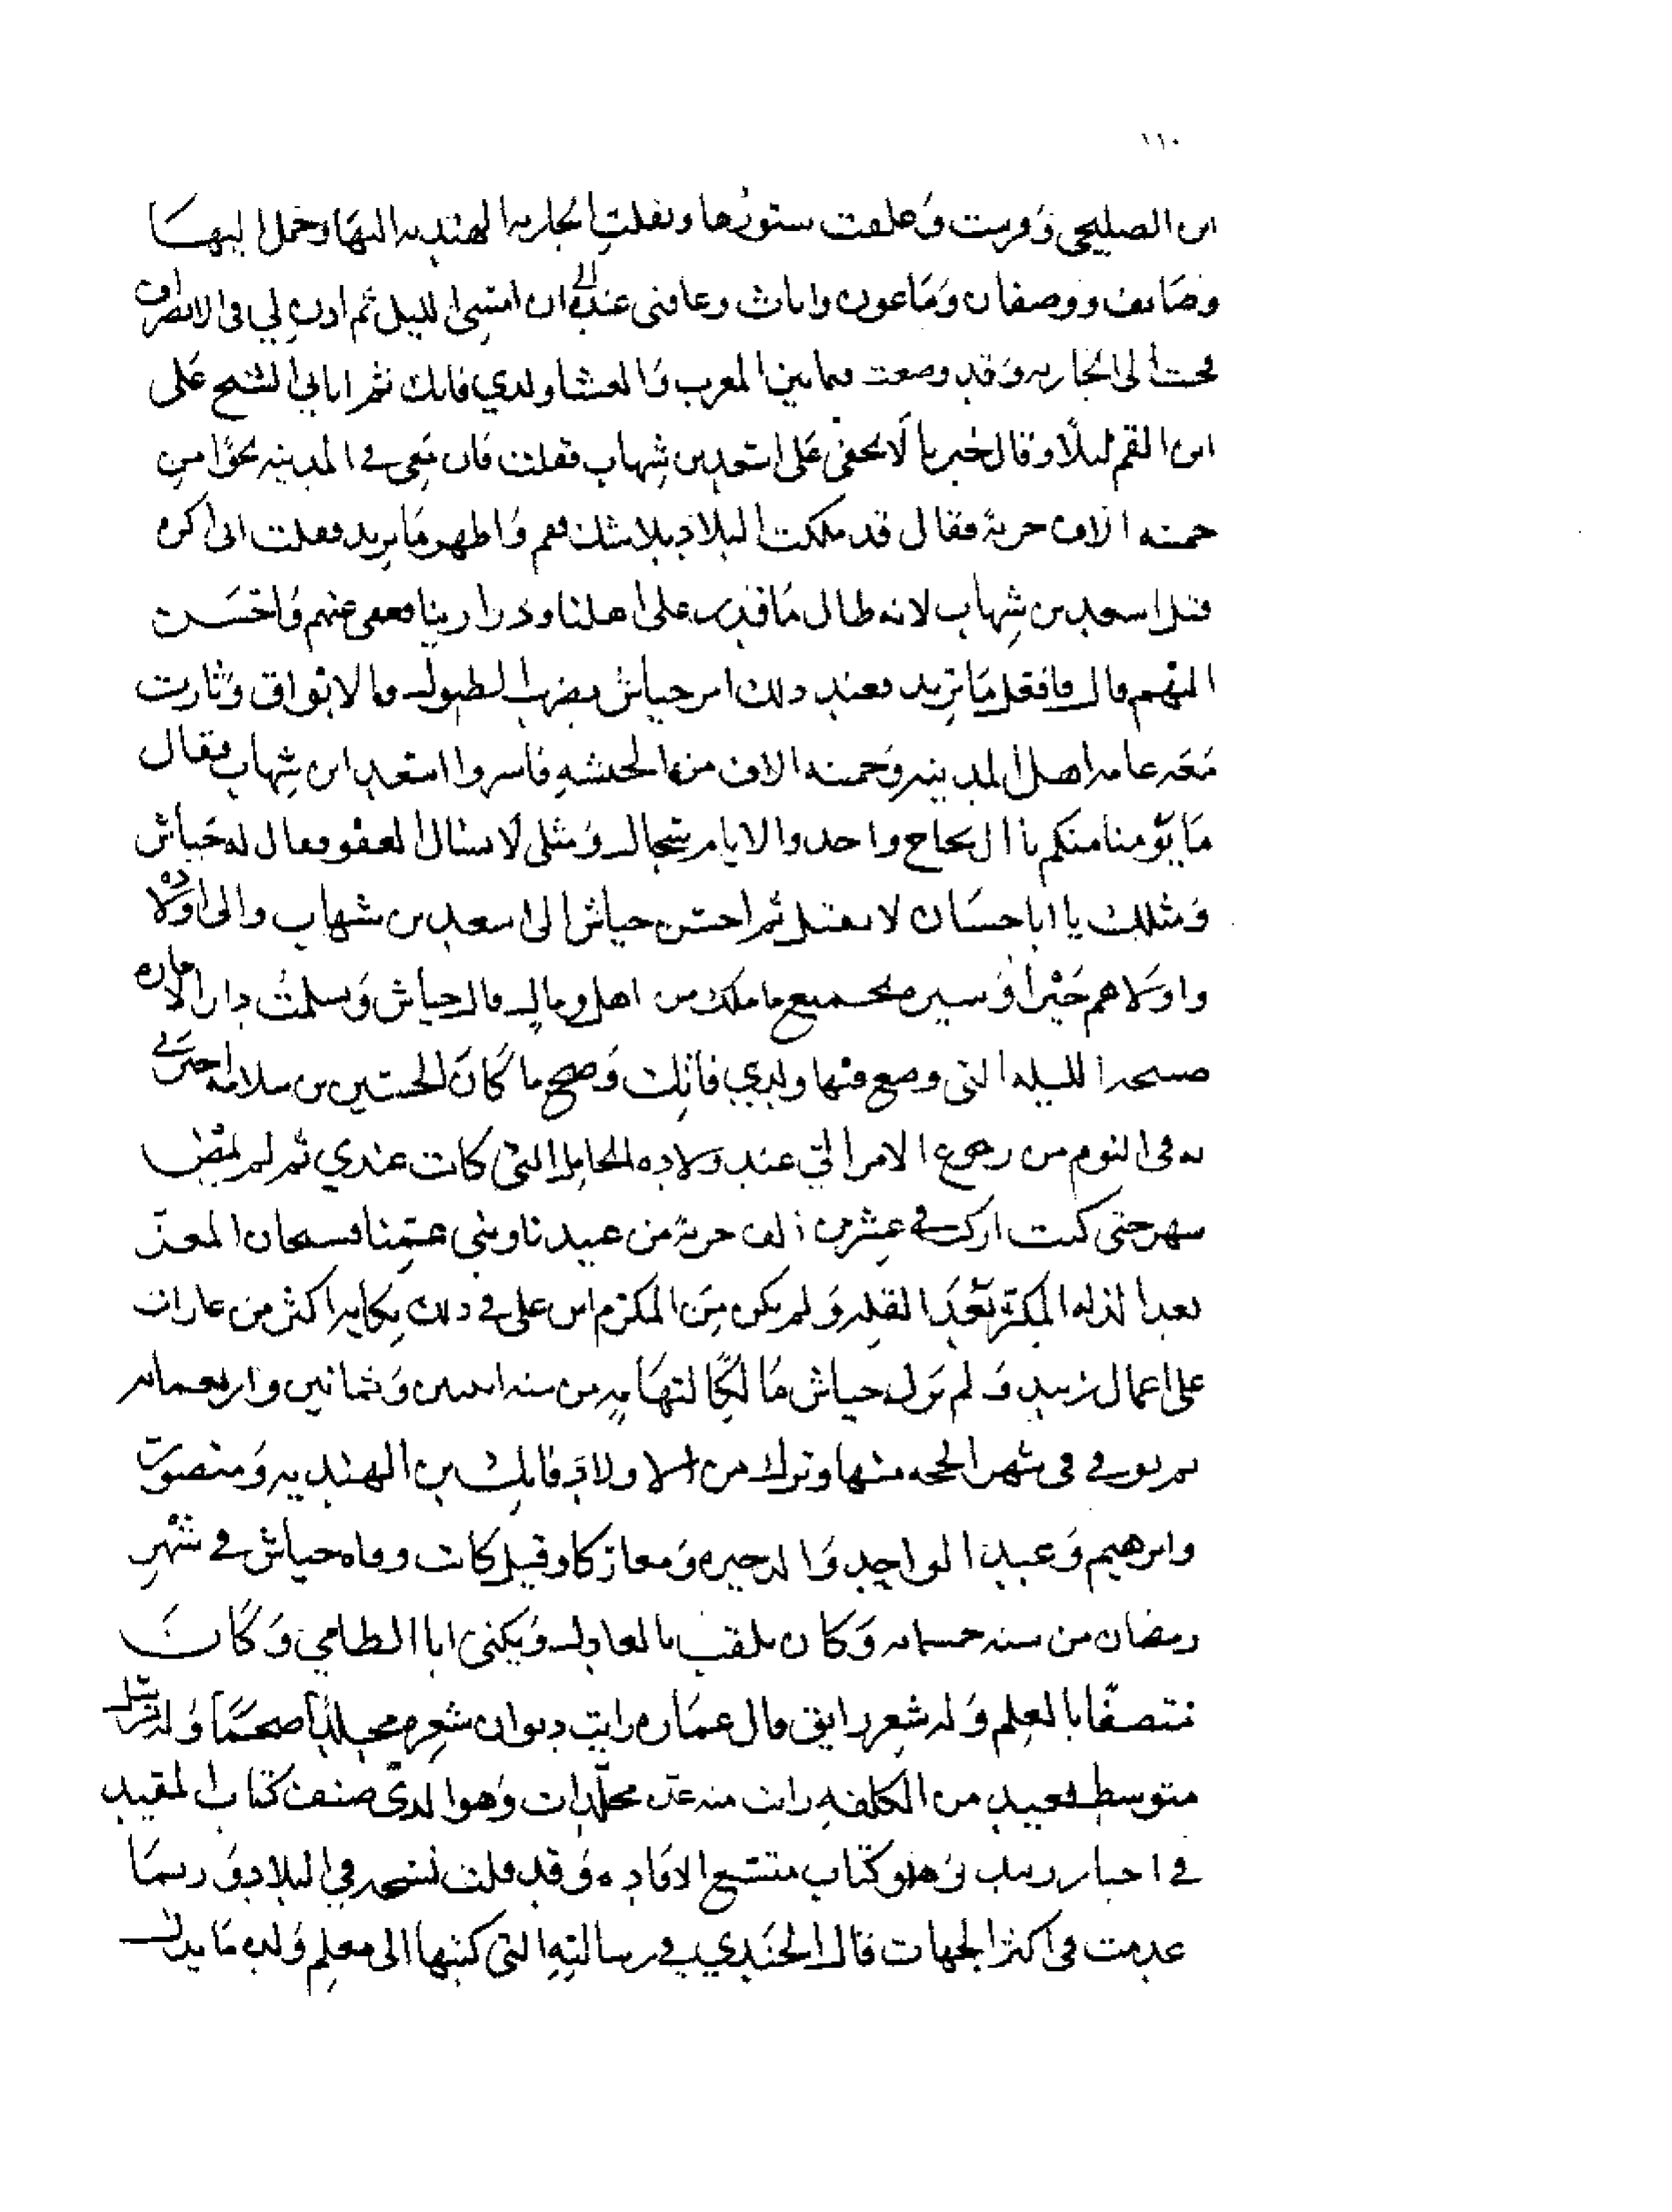 ١١٠
ابن الصليحي وفرشت وعلقت ستورها ونقلت الجاريه الهنديه اليها وحمل اليها
وصايف ووصفان وماعون واثاث وعاقني عنده الى ان امسى الليل ثم اذن لي في الانصراف
فجئت الى الجاريه وقد وضعت فيما بين المغرب والعشا ولدي فاتك ثم اتاني الشيخ على
ابن القم ليلا وقال خبرنا لا يخفى على اسعد بن شهاب فقلت فان معي في المدينه نحوا من
خمسة الاف حربة فقال قد ملكت البلاد بلا شك فقم واظهر ما تريد فقلت اني اكره
قتل اسعد بن شهاب لانه طال ما قدر على اهلنا وذرارينا فعفى عنهم واحسن
اليهم قال فافعل ما تريد فعند ذلك امر جياش بضرب الطبول والابواق وثارت
معه عامه اهل المدينه وخمسة الاف من الحبشه فاسروا اسعد ابن شهاب فقال
ما يؤمننا منكم يا ال نجاح واحد والايام سجال ومثلي لا يسال العفو فقال له جياش
ومثلك يا ابا حسان لا يقتل ثم احسن جياش الى اسعد بن شهاب والى اولاده
واولاهم خيرا وسيره بجميع ما ملك من اهل ومال قال جياش وسلمت دار الاماره
صبيحة الليله التي وضع فيها ولدي فاتك وصح ما كان الحسين بن سلامه اخبرني
به في النوم من رجوع الامر الي عند ولاده الحامل التي كانت عندي ثم لم يمض
شهر حتى كنت اركب في عشرين الف حربة من عبيدنا وبني عمنا فسبحان المعز
بعد الذله المكثر بعد القله ولم يكن من المكرم ابن علي في ذلك نكايه اكثر من غارات
على اعمال زبيد ولم يزل جياش مالكا لتهامه من سنه اثنين وثمانين واربعمايه
ثم توفي في شهر الحجه منها وترك من الاولاد فاتك بن الهنديه ومنصور
وابرهيم وعبد الواحد والذخيره ومعارك وقيل كانت وفاه جياش في شهر
رمضان من سنه خمسمايه وكان يلقب بالعادل ويكنى ابا الطامي وكان
متصفا بالعلم وله شعر رايق قال عماره رايت ديوان شعره مجلدا ضخما وله ترسل
متوسط بعيد من الكلفه رايت منه عدة مجلدات وهو الذي صنف كتاب المفيد
في اخبار زبيد وهو كتاب متسع الافاده وقد قلت نسخه في البلاد وربما
عدمت في اكثر الجهات قال الجندي في رسالته التي كتبها الى معلم ولده ما يدل